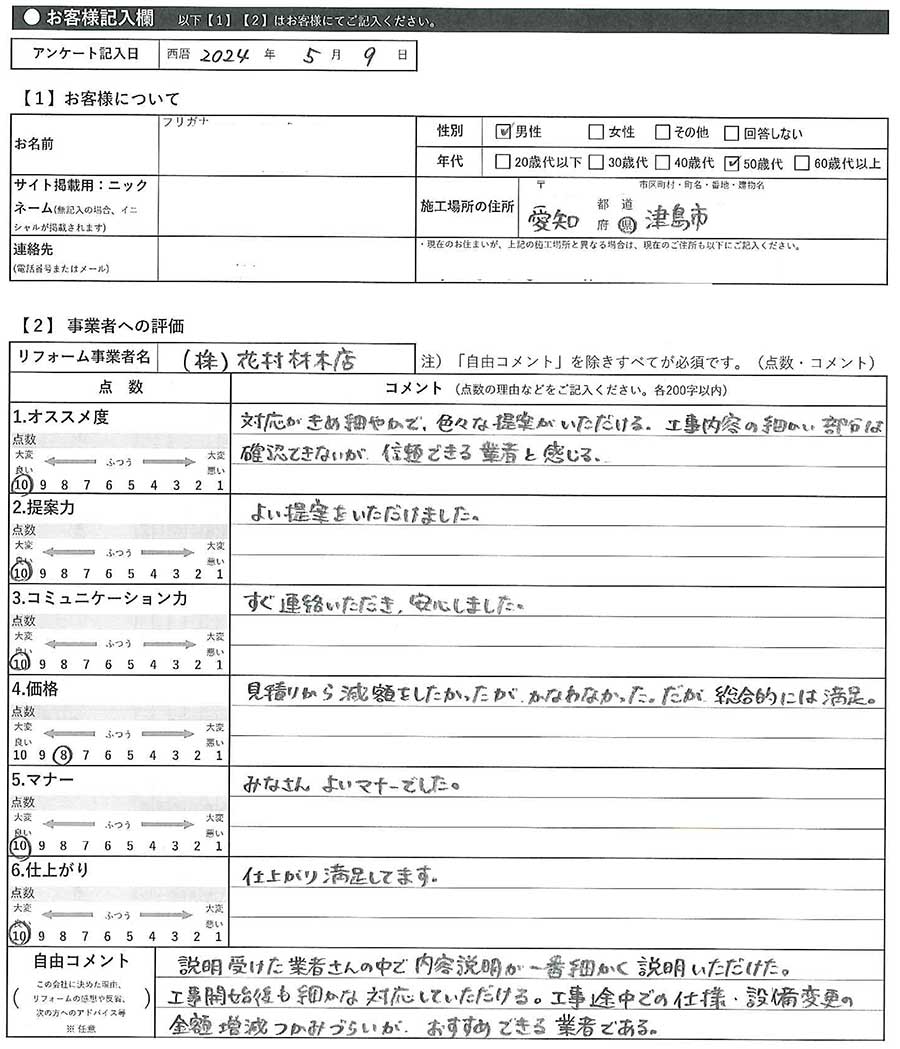 ●お客様記入欄 以下【1】【2】はお客様にてご記入ください。
アンケート記入日 西暦 2024 年 5 月 9 日
【1】お客様について
お名前
フリガナ
性別 ☑男性 □女性 □その他 □回答しない
年代 □20歳代以下 □30歳代 □40歳代 ☑50歳代 □60歳代以上
サイト掲載用：ニック
ネーム(無記入の場合、イニ
シャルが掲載されます)
施工場所の住所
〒 市区町村・町名・番地・建物名
愛知 都道府県 津島市
連絡先
(電話番号またはメール)
・現在のお住まいが、上記の施工場所と異なる場合は、現在のご住所も以下にご記入ください。
【2】事業者への評価
リフォーム事業者名 (株)花村材木店
注）「自由コメント」を除きすべてが必須です。（点数・コメント）
点 数
コメント（点数の理由などをご記入ください。各200字以内）
1.オススメ度
点数
大変良い ふつう 大変悪い
10 9 8 7 6 5 4 3 2 1
対応がきめ細やかで、色々な提案がいただける。工事内容の細かい部分は
確認できないが、信頼できる業者と感じる、
2.提案力
点数
大変良い ふつう 大変悪い
10 9 8 7 6 5 4 3 2 1
よい提案をいただけました。
3.コミュニケーション力
点数
大変良い ふつう 大変悪い
10 9 8 7 6 5 4 3 2 1
すぐ連絡いただき、安心しました。
4.価格
点数
大変良い ふつう 大変悪い
10 9 8 7 6 5 4 3 2 1
見積りから減額をしたかったが、かなわなかった。だが、総合的には満足。
5.マナー
点数
大変良い ふつう 大変悪い
10 9 8 7 6 5 4 3 2 1
みなさん よいマナーでした。
6.仕上がり
点数
大変良い ふつう 大変悪い
10 9 8 7 6 5 4 3 2 1
仕上がり満足してます。
自由コメント
(この会社に決めた理由、
リフォームの感想や反省、
次の方へのアドバイス等)
※任意
説明受けた業者さんの中で内容説明が一番細かく説明いただけた。
工事開始後も細かな対応していただける。工事途中での仕様・設備変更の
金額増減つかみづらいが、おすすめできる業者である。